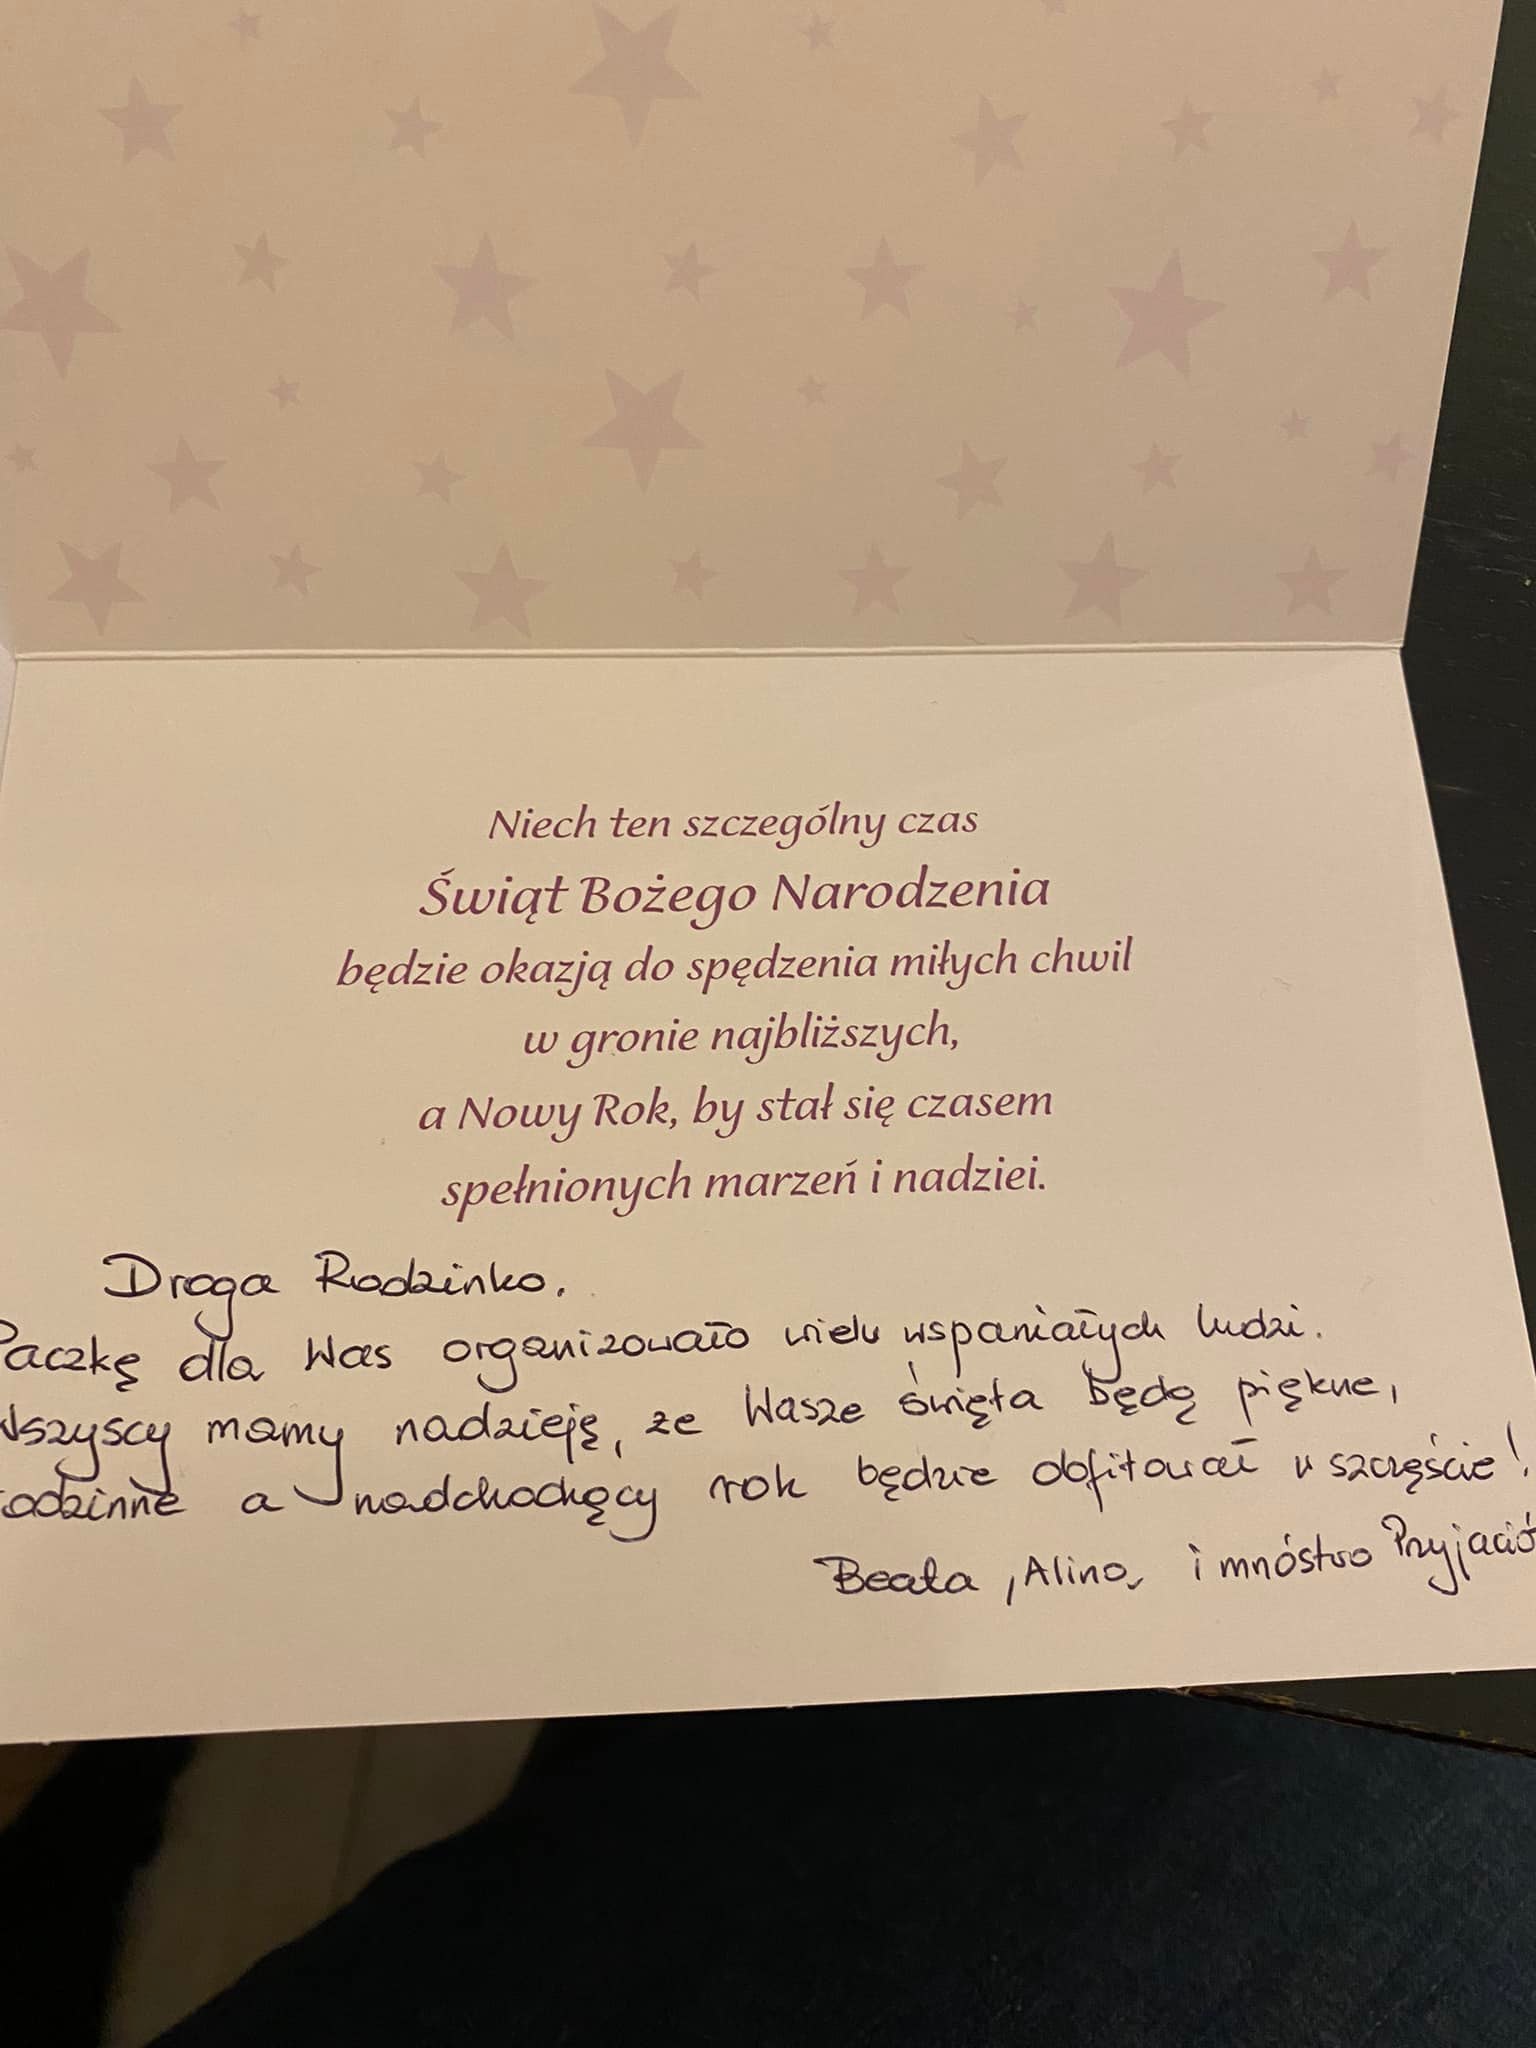 Niech ten szczególny czas
Świąt Bożego Narodzenia
będzie okazją do spędzenia miłych chwil
w gronie najbliższych,
a Nowy Rok, by stał się czasem
spełnionych marzeń i nadziei.
Droga Rodzinko.
Paczkę dla Was organizowało wielu wspaniałych ludzi.
Wszyscy mamy nadzieję, że Wasze święta będą piękne,
rodzinne a nadchodzący rok będzie obfitował w szczęście!
Beata, Alina, i mnóstwo Przyjació